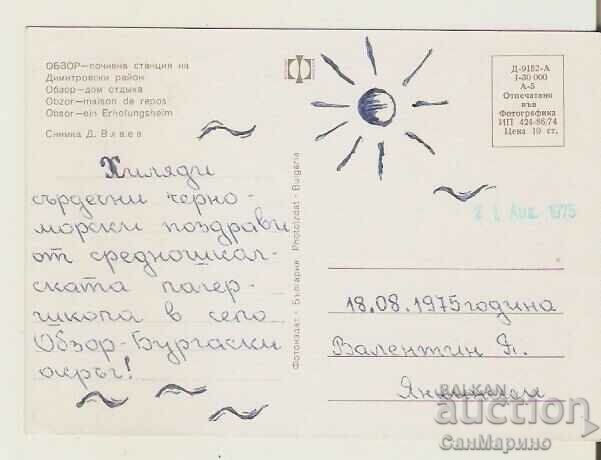 ОБЗОР—почивна станция на
Димитровски район
Обзор—дом отдыха
Obzor—maison de repos
Obsor—ein Erholungsheim
Снимка Д. Влаев
Хиляди
сърдечни черно-
морски поздрави
от средношкал-
ската лагер-
школа в село
Обзор-Бургаски
окръг!
Фотоиздат - България Photoizdat - Bulgaria
Д-9152-А
I-30 000
А-5
Отпечатано
във
Фотографика
ИП 424-86/74
Цена 10 ст.
21 Авг. 1975
18.08.1975 година
Валентин Я.
BALKAN
auction
СанМарино